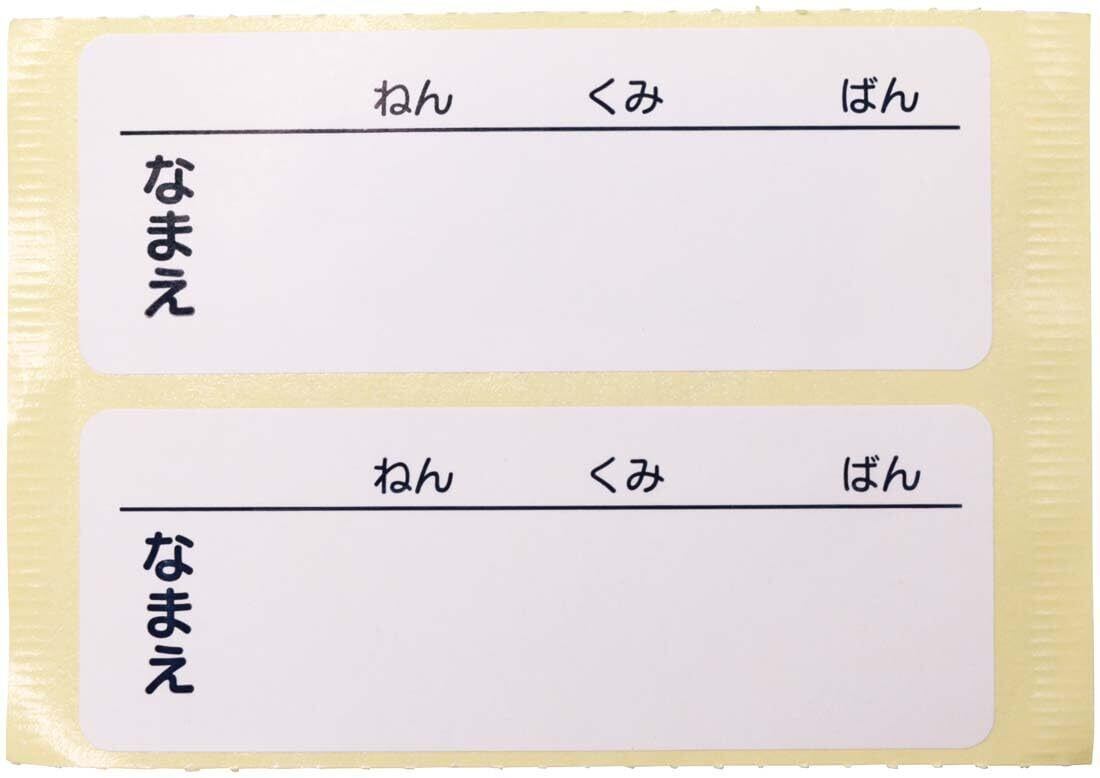 ねん くみ ばん
なまえ
ねん くみ ばん
なまえ